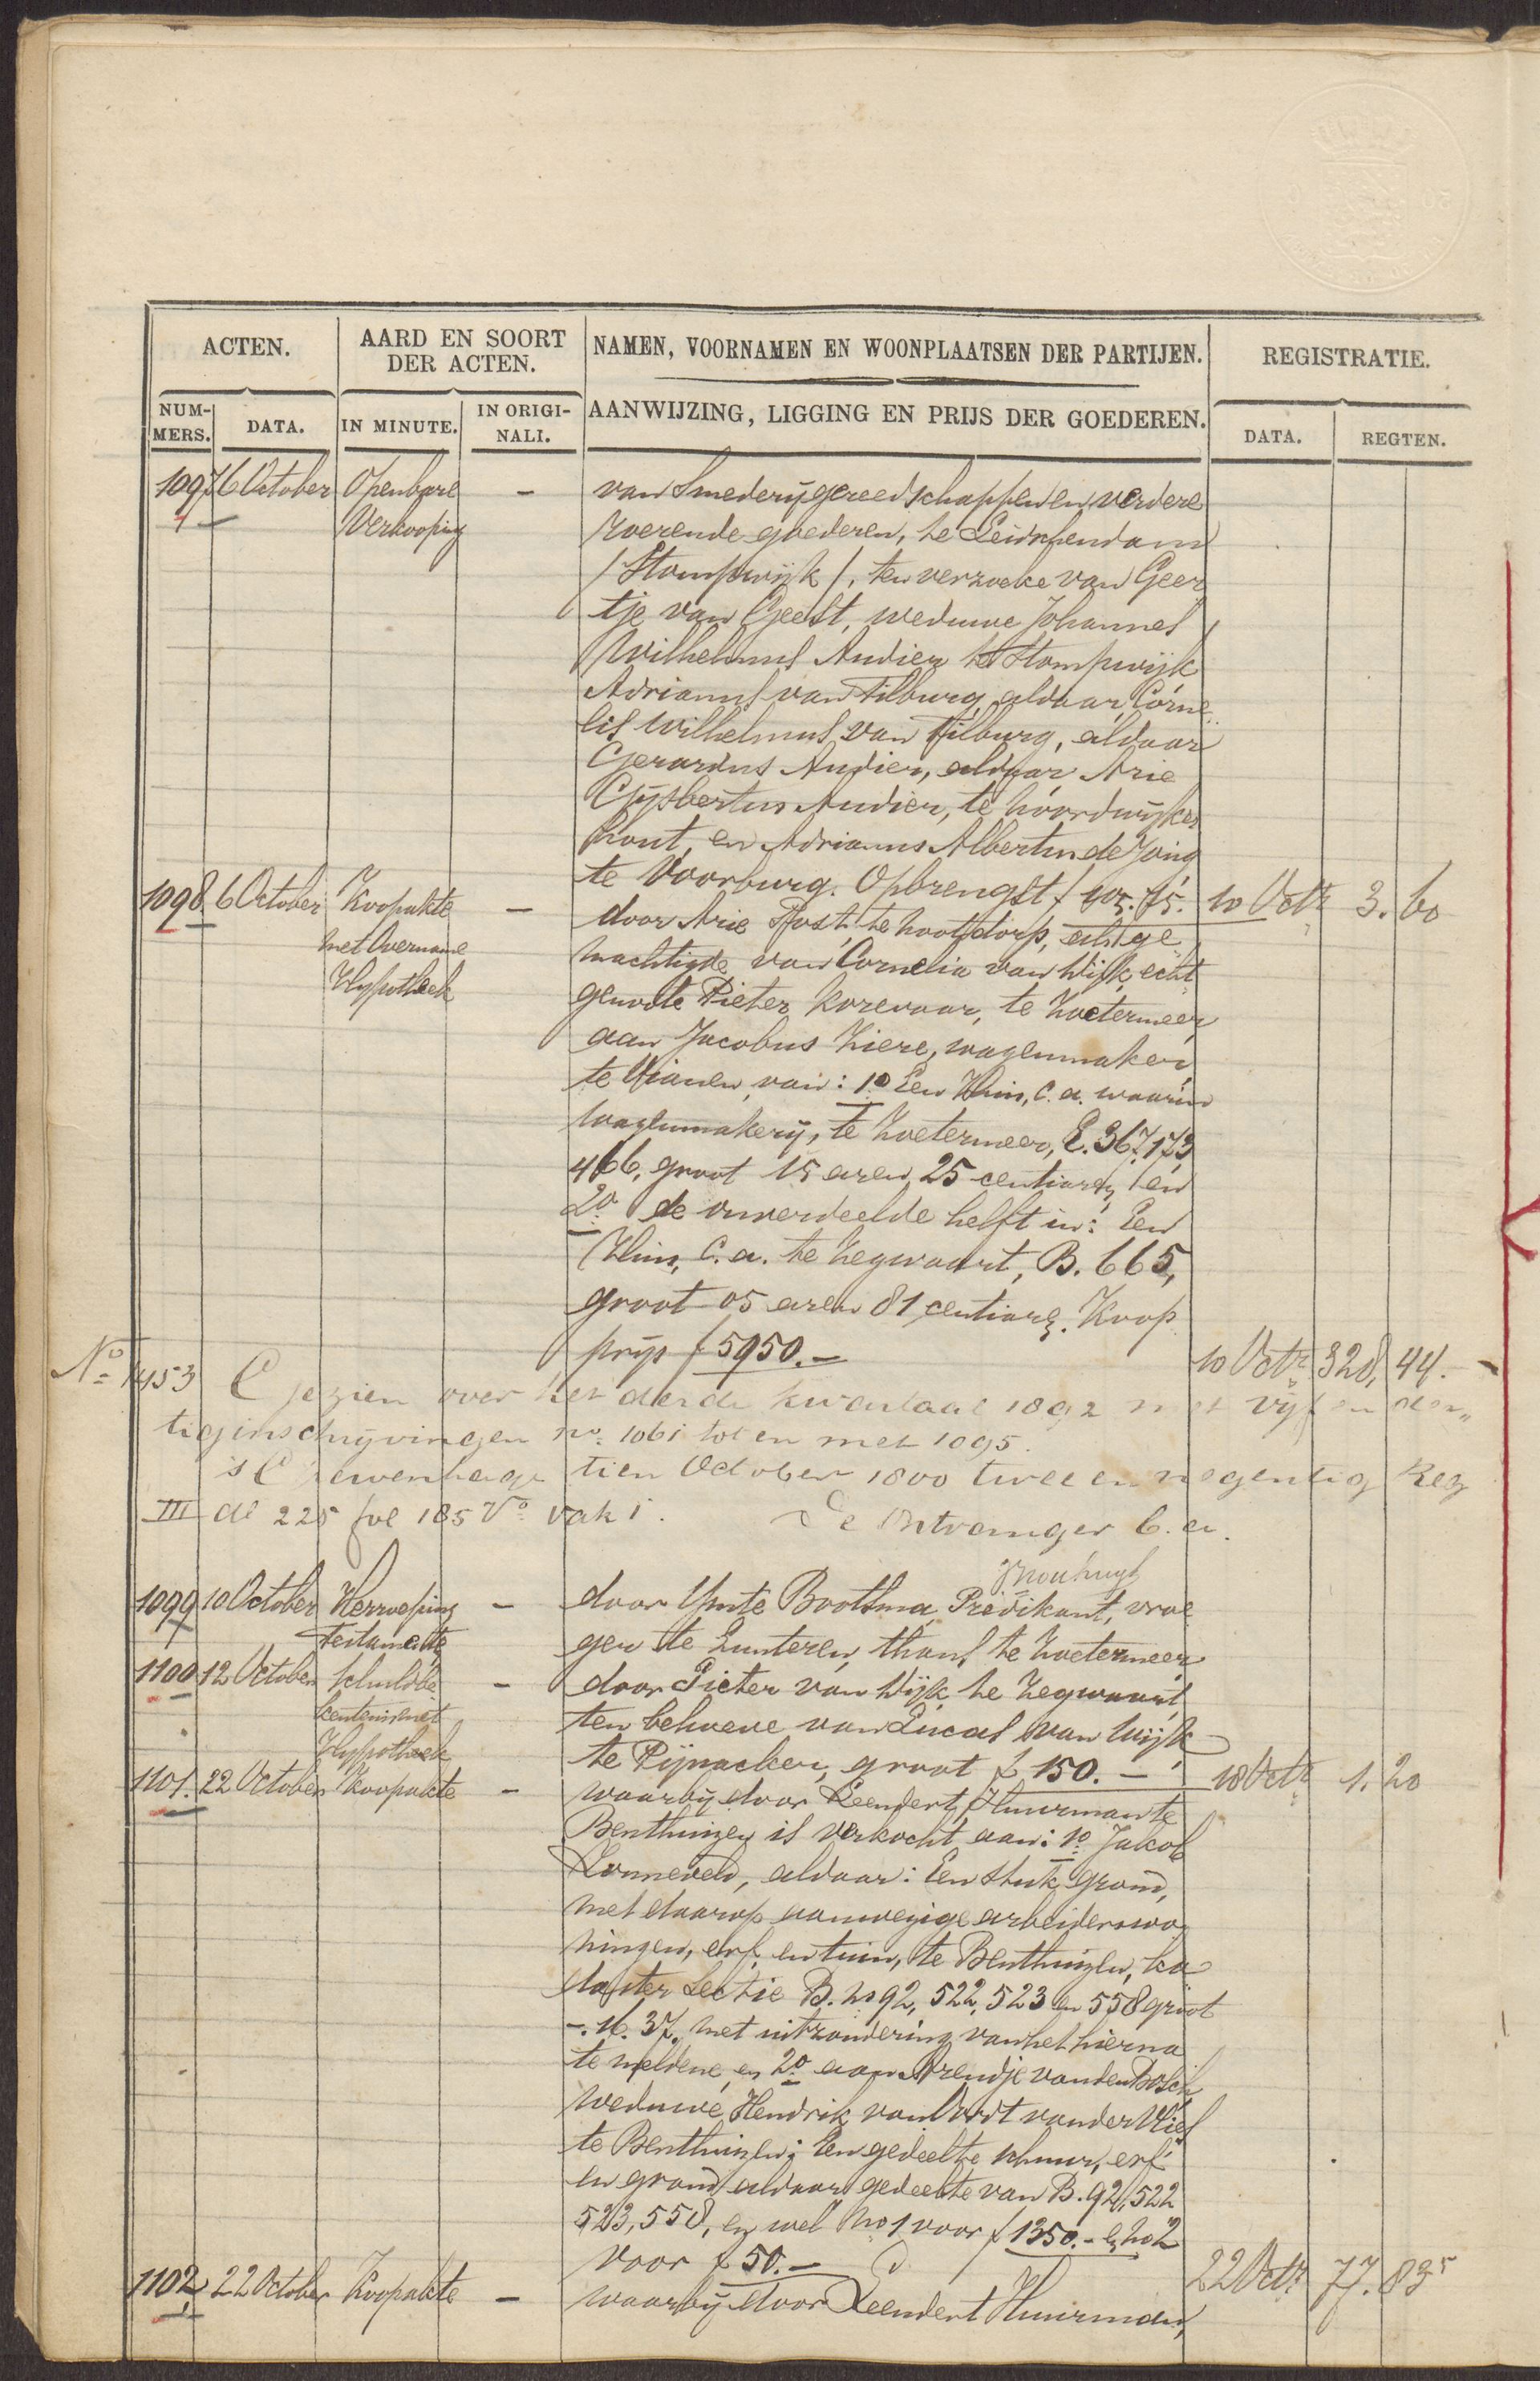 ACTEN.
AARD EN SOORT
DER ACTEN.
NAMEN, VOORNAMEN EN WOONPLAATSEN DER PARTIJEN.
REGISTRATIE.
NUM-
MERS.
DATA.
IN MINUTE.
IN ORIGI-
NALI.
AANWIJZING, LIGGING EN PRIJS DER GOEDEREN.
DATA.
REGTEN.
1097 6 October Openbare - van Smederijgereedschappen en verdere
Verkooping roerende goederen, te Leidschendam
/Stompwijk/, ten verzoeke van Geer
tje van Geest, weduwe Johannes
Wilhelmus Andier te Stompwijk
Adrianus van Tilburg, aldaar, Corne
lis Wilhelmus van Tilburg, aldaar
Gerardus Andier, aldaar Arie
Gijsbertus Andier, te Noordwijker
hout, en Adrianus Albertus de Jong
te Voorburg. Opbrengst f 405.75. 10 Octr 3.60
1098 6 October Koopakte - door Arie Post, te Nootdorp, als ge
met Overname machtigde van Cornelia van Wijk, echt
Hypotheek genoote Pieter Korevaar, te Zoetermeer,
aan Jacobus Ziere, wagenmaker,
te Vianen, van: 1o Een Huis, c.a. waarin
wagenmakerij, te Zoetermeer, E. 367, 173,
466, groot 15 aren 25 centiaren, en
2o de onverdeelde helft in: Een
Huis, c.a. te Zegwaart, B. 665,
groot 05 aren 81 centiaren. Koop
prijs f 5950.- 10 Octr 328,44.
No 1453 Gezien over het derde kwartaal 1892 met vijf en der„
tig inschrijvingen no 1061 tot en met 1095.
's Gravenhage tien October 1800 twee en negentig Reg
III dl 225 fol 185 Vo vak 1. De Ontvanger b.a.
1099 10 October Herroeping - door Ymte Bootsma, Predikant, vroe
Testamente ger te Lunteren, thans te Zoetermeer
1100 12 October Schuldbe - door Pieter van Wijk, te Zegwaart,
kentenis met ten behoeve van Lucas van Wijk
Hypotheek te Pijnacker, groot f 150.- 18 Octr 1.20
1101. 22 October Koopakte - waarbij door Leendert Huurman te
Benthuizen is verkocht aan: 1o Jakob
Lonneveld, aldaar: Een stuk grond,
met daarop aanwezige arbeiderswo
ningen, erf en tuin, te Benthuizen, ka
daster Sectie B. no 92, 522, 523 en 558 groot
-.16.37. met uitzondering van het hierna
te meldene, en 2o aan Arendje van den Bosch,
weduwe Hendrik van Oordt van der Vlies
te Benthuizen; Een gedeelte schuur, erf
en grond aldaar gedeelte van B. 92, 522
523, 558, en wel No 1 voor f 1350.- en no 2
voor f 50.- 22 Octr 77.835
1102 22 October Koopakte - waarbij door Leendert Huurman,